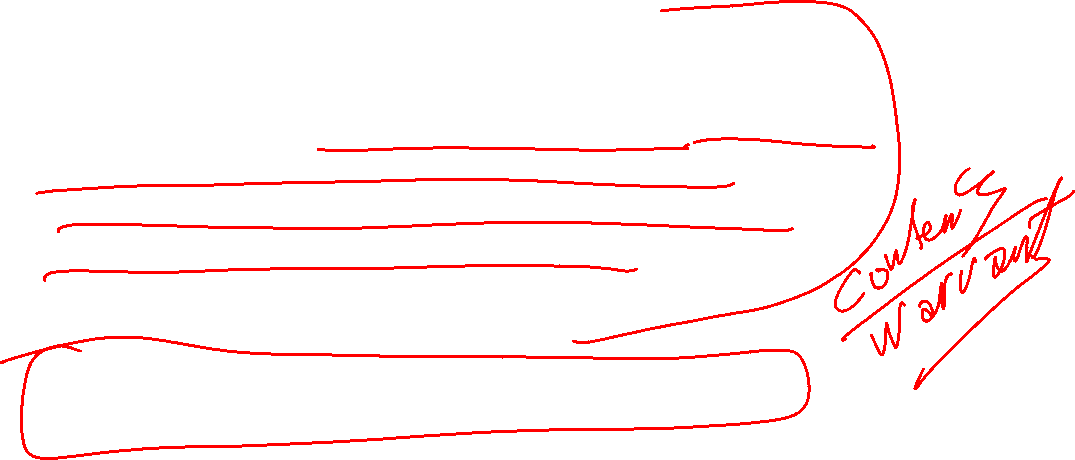 Contency
Warrant